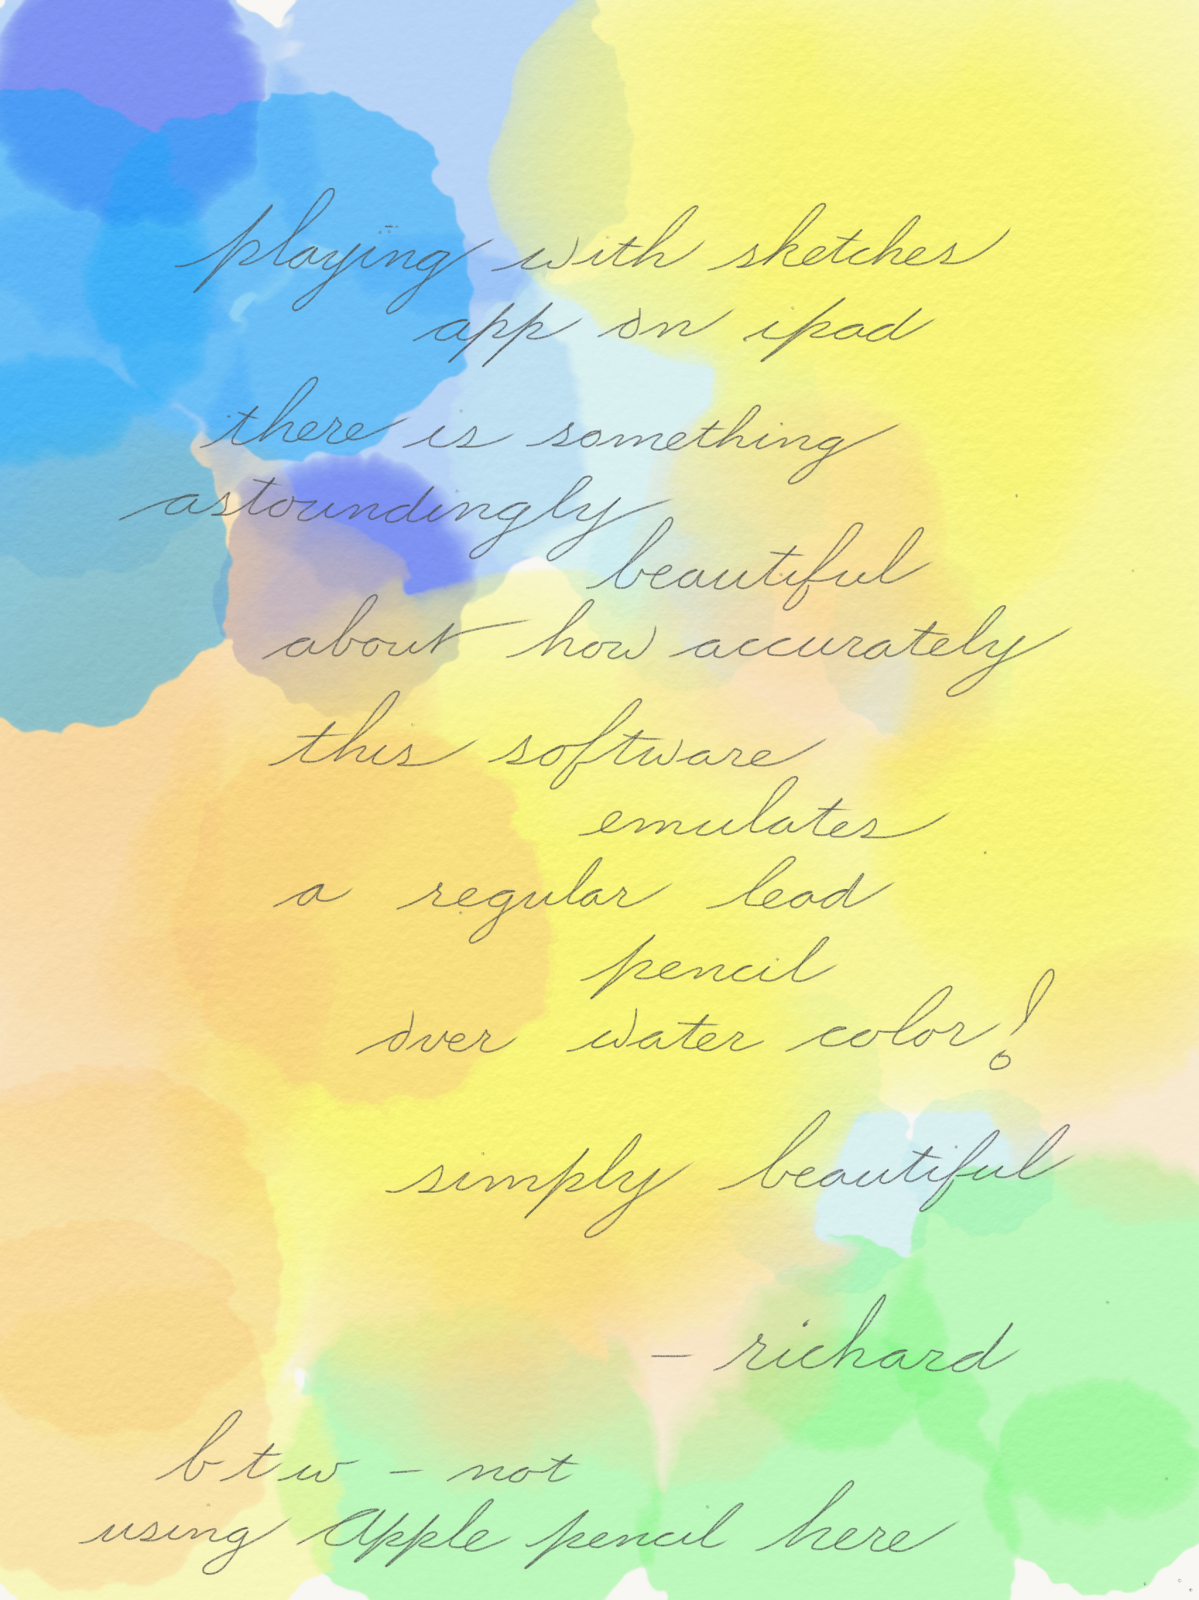 playing with sketches
app on ipad
there is something
astoundingly
beautiful
about how accurately
this software
emulates
a regular lead
pencil
over water color!
simply beautiful
- richard
btw - not
using Apple pencil here